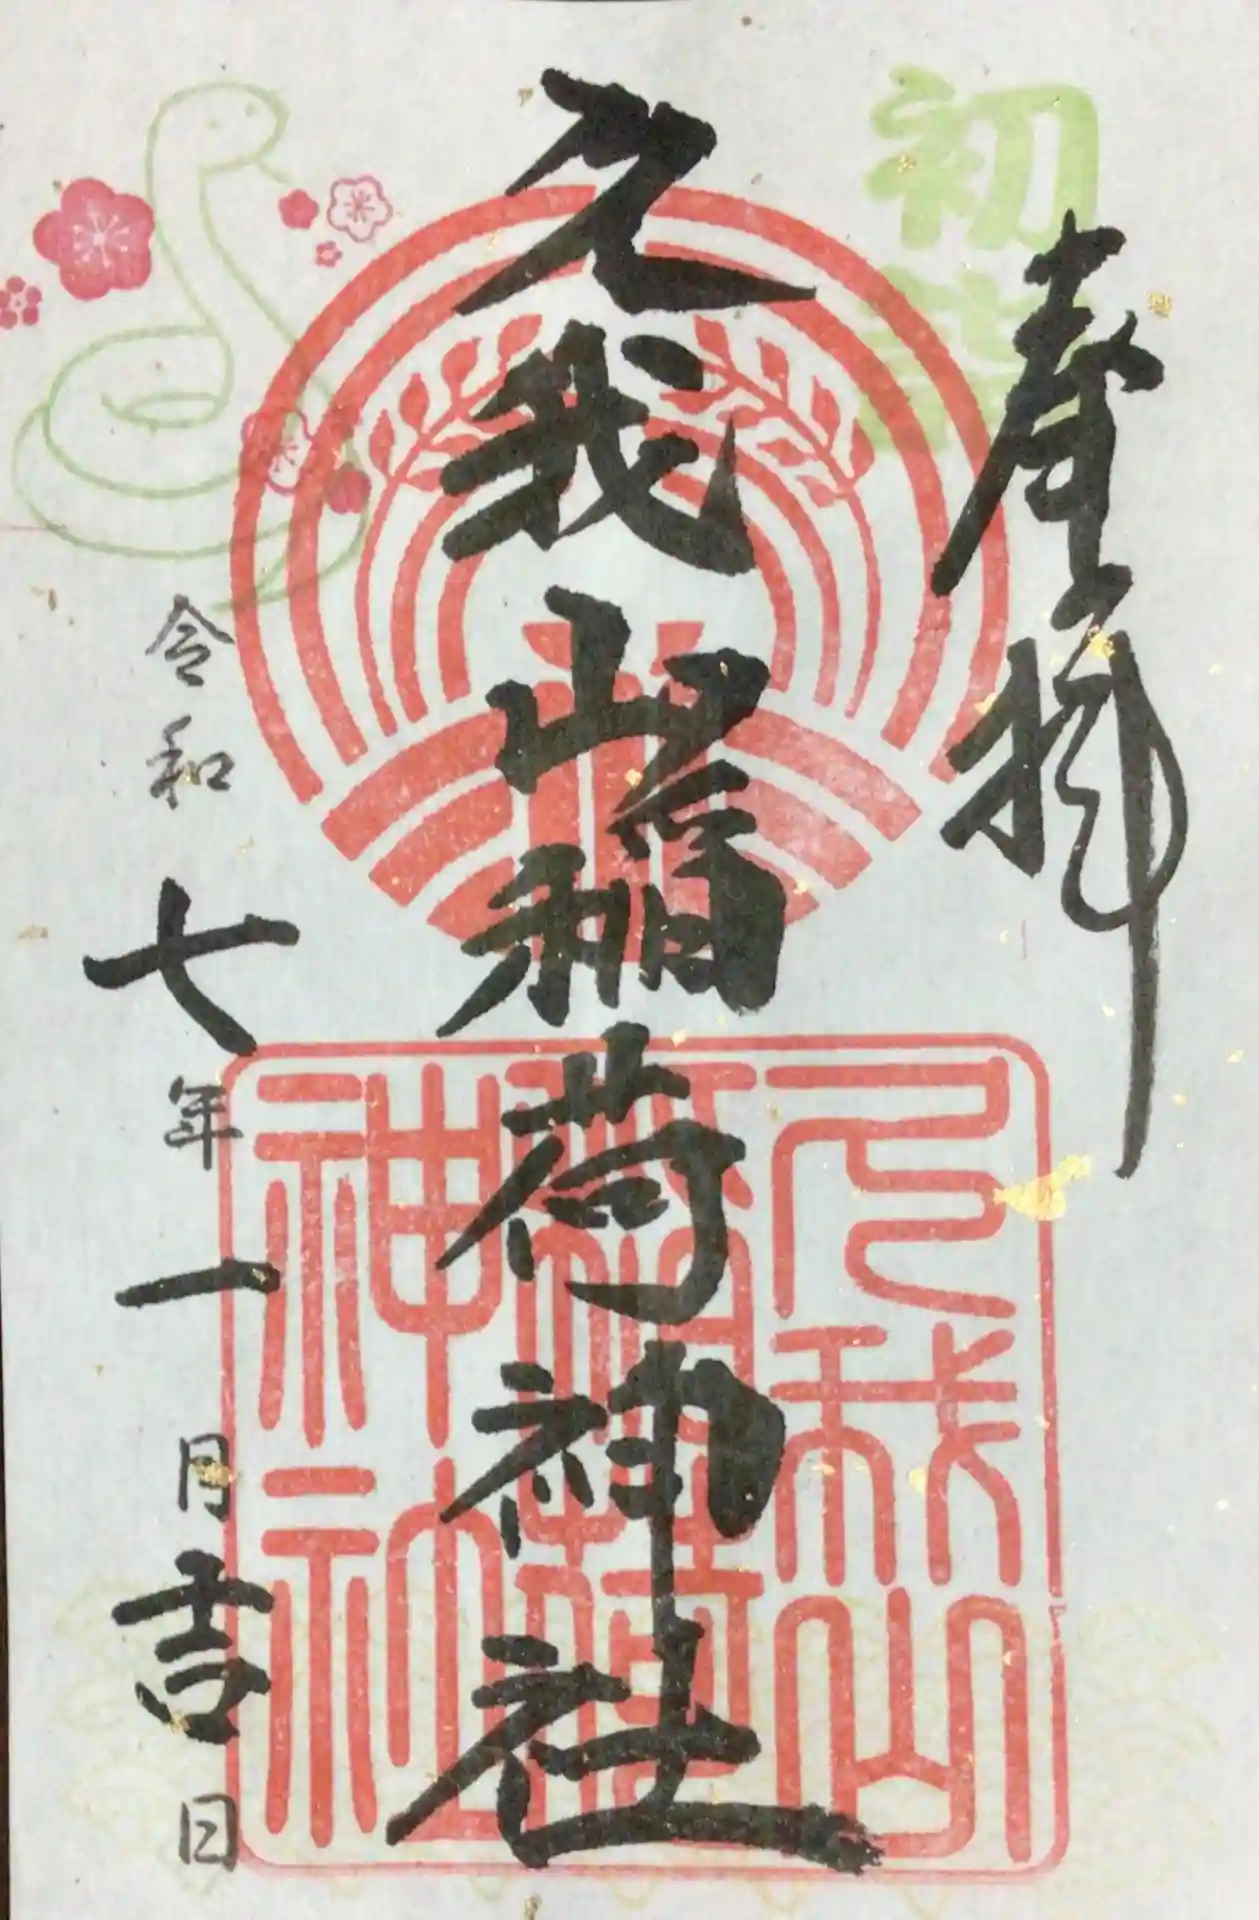 初詣
奉拝
久我山稲荷神社
令和七年一月吉日
久我山稲荷神社